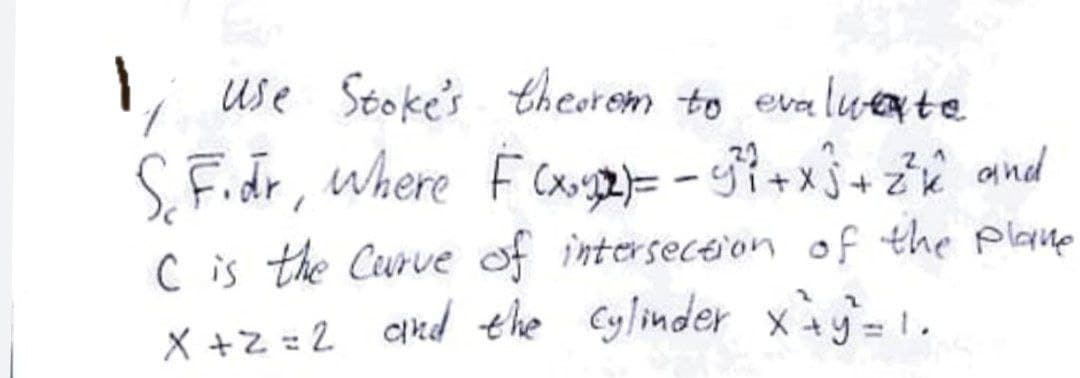 1, use Stoke's theorem to evaluate
∫c F̅.d̅r, where F(x,y,z)= - y²î+xĵ+z²k̂ and
C is the Curve of intersection of the plane
x +z =2 and the cylinder x²+y²= 1.